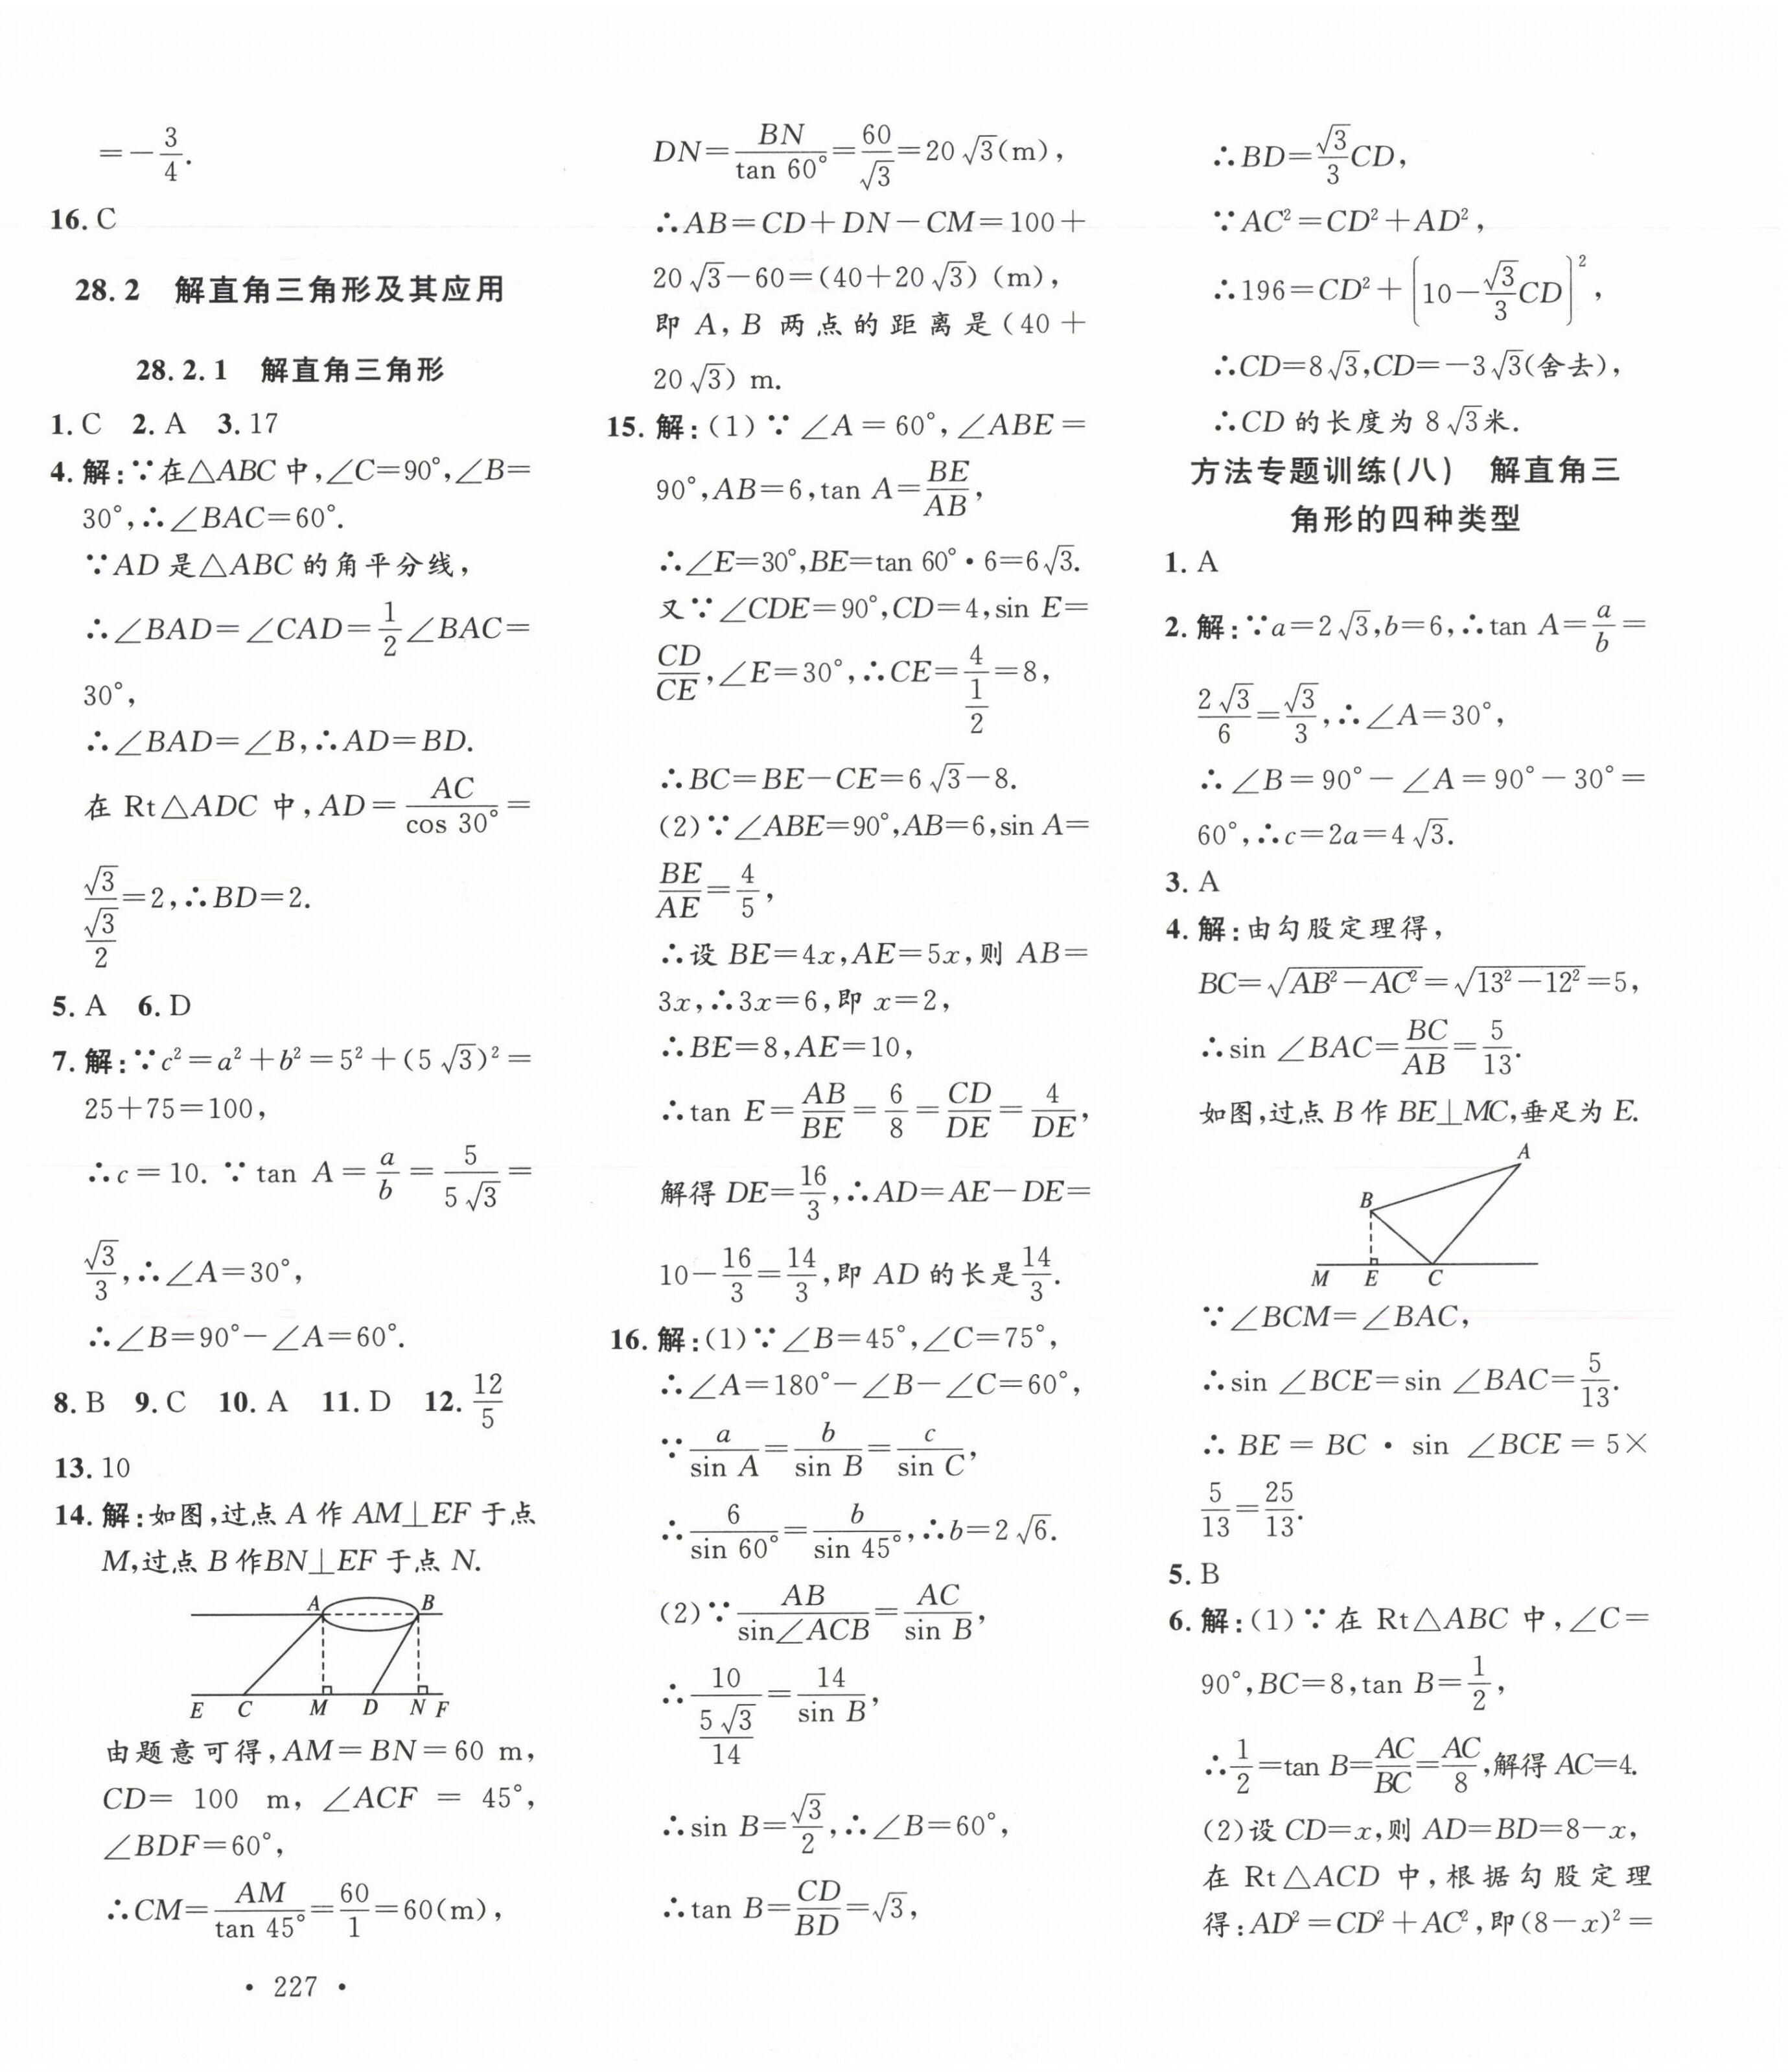 =-3/4.
16. C
28.2 解直角三角形及其应用
28.2.1 解直角三角形
1. C 2. A 3. 17
4. 解:∵在△ABC中,∠C=90°,∠B=
30°,∴∠BAC=60°.
∵AD是△ABC的角平分线,
∴∠BAD=∠CAD=1/2∠BAC=
30°,
∴∠BAD=∠B,∴AD=BD.
在 Rt△ADC 中,AD=AC/cos 30°=
√3/(√3/2)=2,∴BD=2.
5. A 6. D
7. 解:∵c²=a²+b²=5²+(5√3)²=
25+75=100,
∴c=10. ∵tan A=a/b=5/(5√3)=
√3/3,∴∠A=30°,
∴∠B=90°-∠A=60°.
8. B 9. C 10. A 11. D 12. 12/5
13. 10
14. 解:如图,过点A作AM⊥EF于点
M,过点B作BN⊥EF于点N.
A B
E C M D N F
由题意可得,AM=BN=60 m,
CD=100 m,∠ACF=45°,
∠BDF=60°,
∴CM=AM/tan 45°=60/1=60(m),
· 227 ·
DN=BN/tan 60°=60/√3=20√3(m),
∴AB=CD+DN-CM=100+
20√3-60=(40+20√3)(m),
即A,B两点的距离是(40+
20√3) m.
15. 解:(1)∵∠A=60°,∠ABE=
90°,AB=6,tan A=BE/AB,
∴∠E=30°,BE=tan 60°·6=6√3.
又∵∠CDE=90°,CD=4,sin E=
CD/CE,∠E=30°,∴CE=4/(1/2)=8,
∴BC=BE-CE=6√3-8.
(2)∵∠ABE=90°,AB=6,sin A=
BE/AE=4/5,
∴设BE=4x,AE=5x,则AB=
3x,∴3x=6,即x=2,
∴BE=8,AE=10,
∴tan E=AB/BE=6/8=CD/DE=4/DE,
解得DE=16/3,∴AD=AE-DE=
10-16/3=14/3,即AD的长是14/3.
16. 解:(1)∵∠B=45°,∠C=75°,
∴∠A=180°-∠B-∠C=60°,
∵a/sin A=b/sin B=c/sin C,
∴6/sin 60°=b/sin 45°,∴b=2√6.
(2)∵AB/sin∠ACB=AC/sin B,
∴10/(5√3/14)=14/sin B,
∴sin B=√3/2,∴∠B=60°,
∴tan B=CD/BD=√3,
∴BD=√3/3CD,
∵AC²=CD²+AD²,
∴196=CD²+(10-√3/3CD)²,
∴CD=8√3,CD=-3√3(舍去),
∴CD的长度为8√3米.
方法专题训练(八) 解直角三
角形的四种类型
1. A
2. 解:∵a=2√3,b=6,∴tan A=a/b=
2√3/6=√3/3,∴∠A=30°,
∴∠B=90°-∠A=90°-30°=
60°,∴c=2a=4√3.
3. A
4. 解:由勾股定理得,
BC=√(AB²-AC²)=√(13²-12²)=5,
∴sin ∠BAC=BC/AB=5/13.
如图,过点B作BE⊥MC,垂足为E.
A
B
M E C
∵∠BCM=∠BAC,
∴sin ∠BCE=sin ∠BAC=5/13.
∴BE=BC·sin ∠BCE=5×
5/13=25/13.
5. B
6. 解:(1)∵在 Rt△ABC 中,∠C=
90°,BC=8,tan B=1/2,
∴1/2=tan B=AC/BC=AC/8,解得AC=4.
(2)设CD=x,则AD=BD=8-x,
在 Rt△ACD 中,根据勾股定理
得:AD²=CD²+AC²,即(8-x)²=